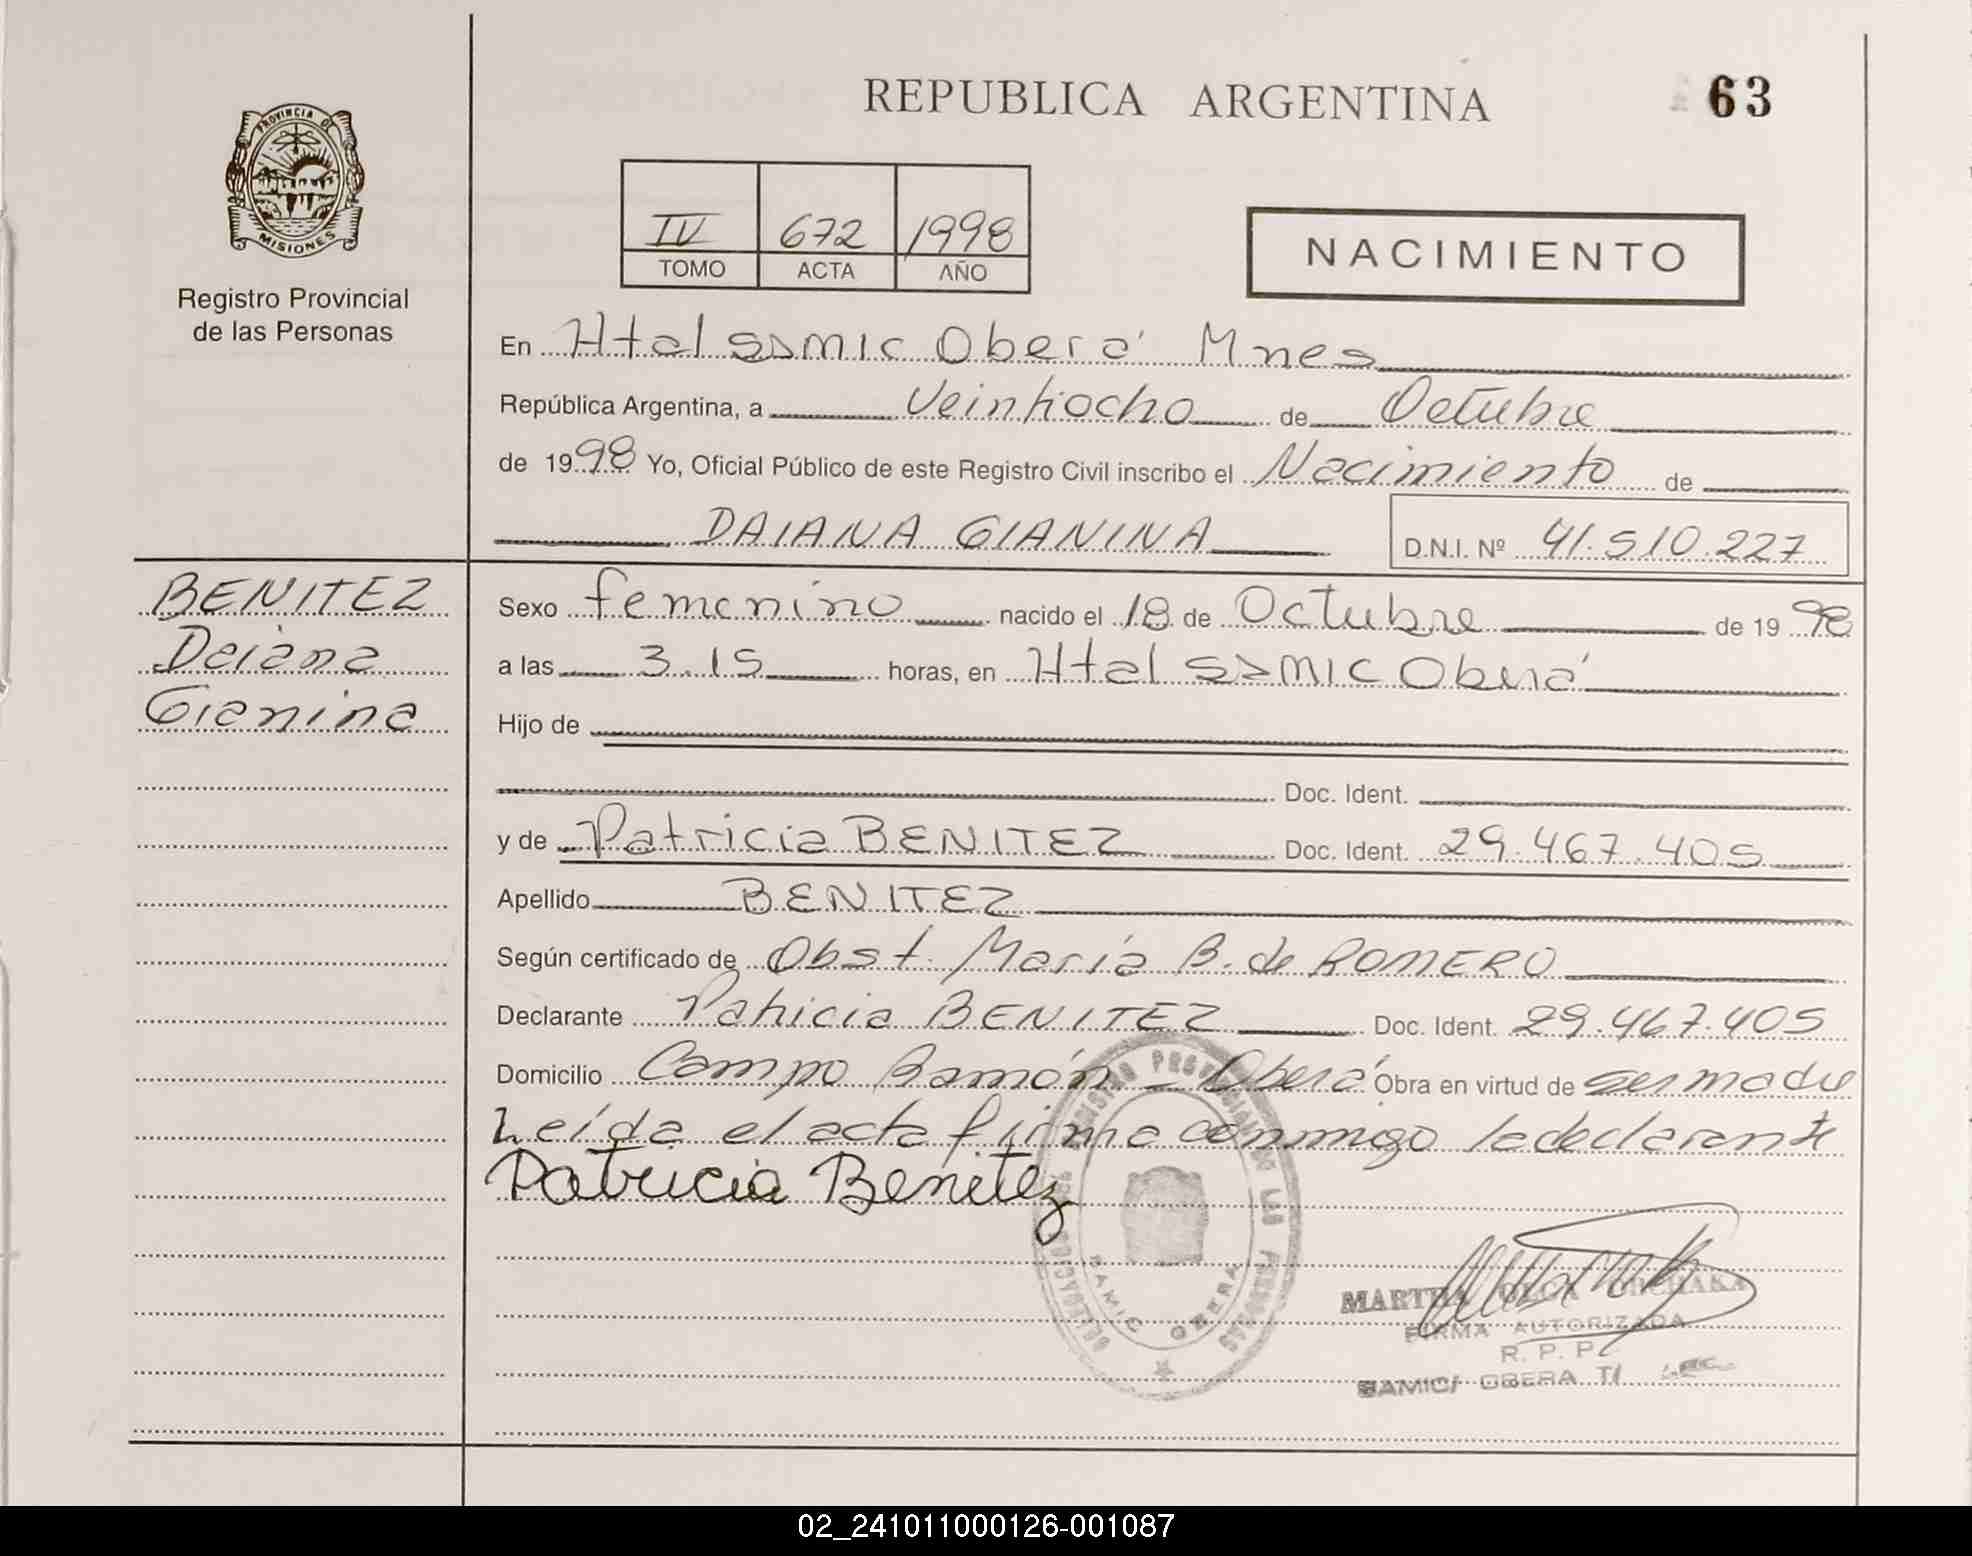 REPUBLICA ARGENTINA
63
PROVINCIA DE
MISIONES
Registro Provincial
de las Personas
IV 672 1998
TOMO ACTA AÑO
NACIMIENTO
En Htal SAMIC Oberá Mnes
República Argentina, a Veintiocho de Octubre
de 1998 Yo, Oficial Público de este Registro Civil inscribo el Nacimiento de
DAIANA GIANINA D.N.I. Nº 41.510.227
BENITEZ
Daiana
Gianina
Sexo femenino nacido el 18 de Octubre de 1998
a las 3.15 horas, en Htal SAMIC Oberá
Hijo de
Doc. Ident.
y de Patricia BENITEZ Doc. Ident. 29.467.405
Apellido BENITEZ
Según certificado de Obst. María B. de ROMERO
Declarante Patricia BENITEZ Doc. Ident. 29.467.405
Domicilio Campo Ramón - Oberá Obra en virtud de ser madre
Leída el acta firma conmigo la declarante
Patricia Benitez
DELEGACION REGISTRO PROVINCIAL DE LAS PERSONAS
SAMIC OBERA
MARTHA OLGA
FIRMA AUTORIZADA
R. P. P.
SAMIC/ OBERA
02_241011000126-001087